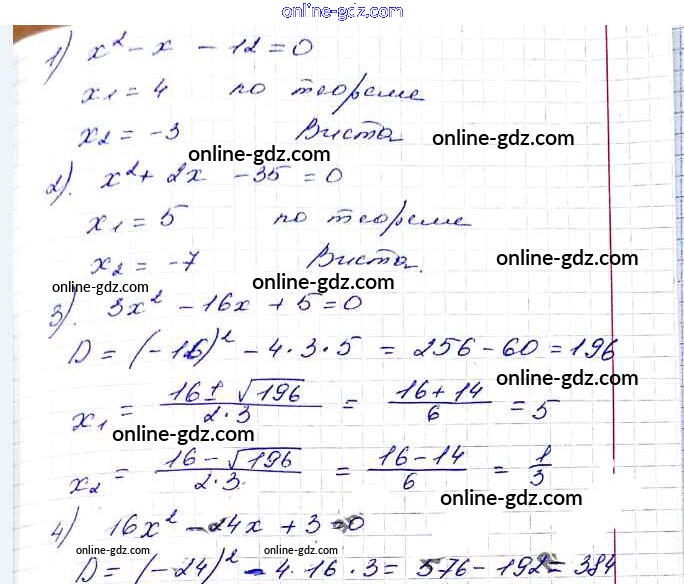 online-gdz.com
1) x² - x - 12 = 0
x₁ = 4 по теореме
x₂ = -3 Виета online-gdz.com
online-gdz.com
2). x² + 2x - 35 = 0
x₁ = 5 по теореме
x₂ = -7 Виета. online-gdz.com
online-gdz.com
3). 3x² - 16x + 5 = 0
D = (-16)² - 4·3·5 = 256 - 60 = 196
online-gdz.com
x₁ = (16 + √196)/(2·3) = (16 + 14)/6 = 5
online-gdz.com
x₂ = (16 - √196)/(2·3) = (16 - 14)/6 = 1/3
online-gdz.com
4) 16x² - 24x + 3 = 0
online-gdz.com online-gdz.com online-gdz.com
D = (-24)² - 4·16·3 = 576 - 192 = 384